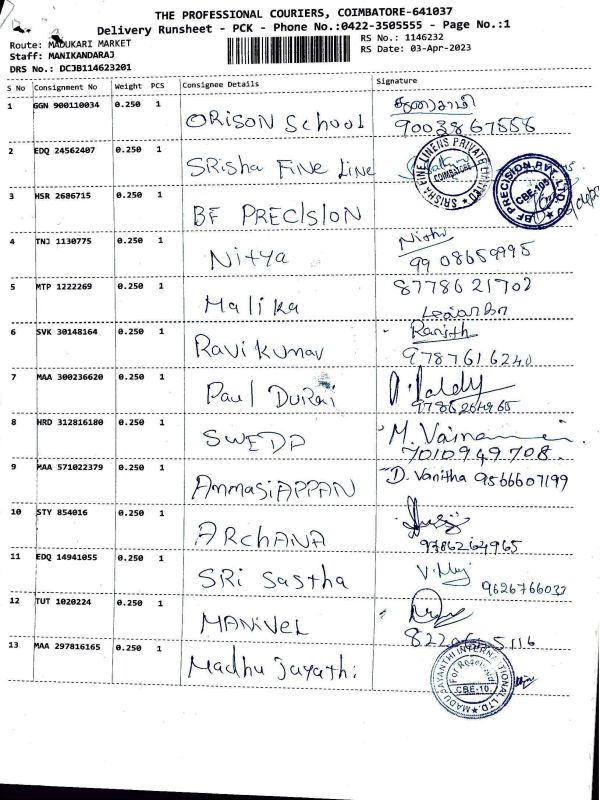 THE PROFESSIONAL COURIERS, COIMBATORE-641037
Delivery Runsheet - PCK - Phone No.:0422-3505555 - Page No.:1
Route: MADUKARI MARKET
Staff: MANIKANDARAJ
DRS No.: DCJB114623201
RS No.: 1146232
RS Date: 03-Apr-2023
S No Consignment No Weight PCS Consignee Details Signature
1 GGN 900110034 0.250 1 ORISON School
9003867558
2 EDQ 24562407 0.250 1 SRisha FINE LINE
SRISHA FINE LINERS PRIVATE LIMITED
COIMBATORE
3 HSR 2686715 0.250 1 BF PRECISION
BF PRECISION PVT. LTD.
CBE-105
4 TNJ 1130775 0.250 1 Nitya
99 08659995
5 MTP 1222269 0.250 1 Malika 87786 21702
6 SVK 30148164 0.250 1 Ravi kumar Ranjith
9787616240
7 MAA 300236620 0.250 1 Paul DURai
9786264965
8 HRD 312816180 0.250 1 SWEDA M.
7010949708.
9 MAA 571022379 0.250 1 AmmasiAPPAN D. Vanitha 9566607199
10 STY 854016 0.250 1 ARchANA
9786264965
11 EDQ 14941055 0.250 1 SRi Sastha
9626766032
12 TUT 1020224 0.250 1 MANiVEL
13 MAA 297816165 0.250 1 Madhu jayathi
MADU JAYANTHI INTERNATIONAL LTD.
CBE-10